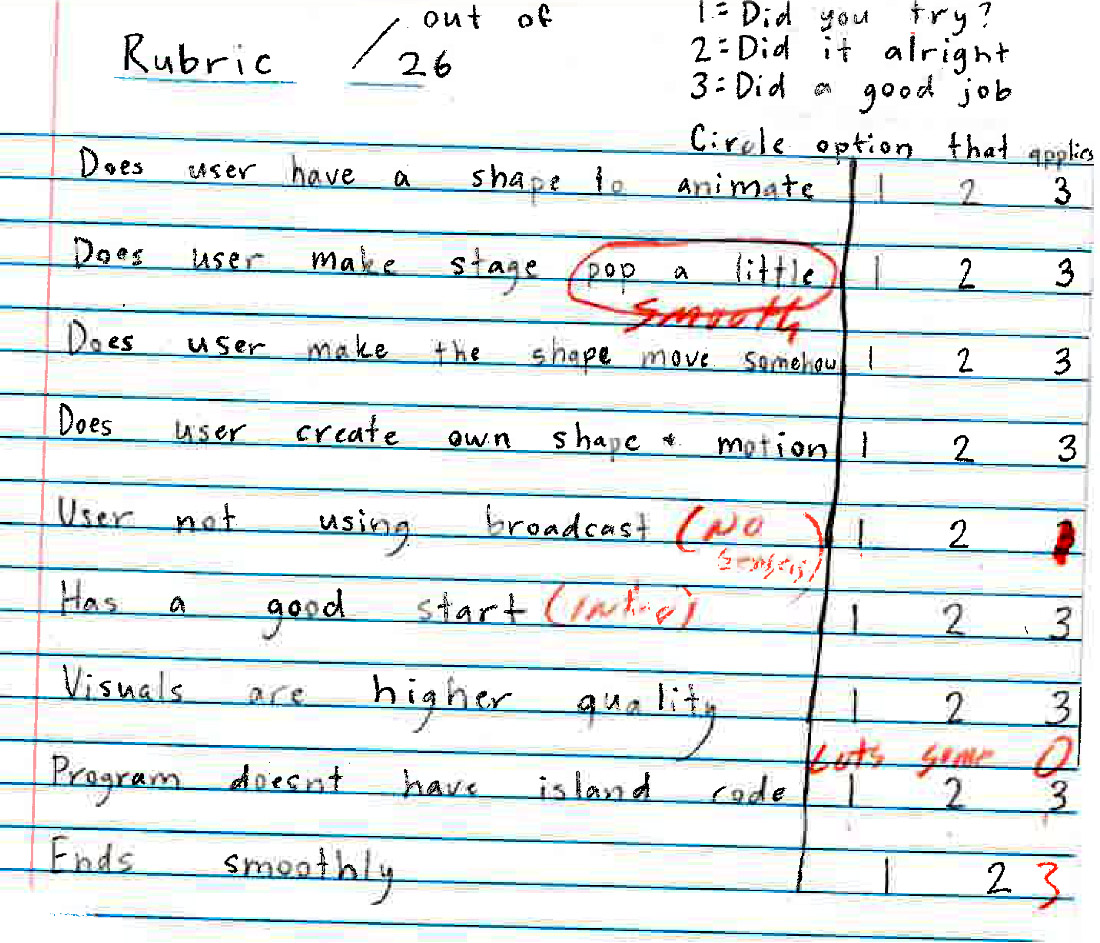 out of
Rubric / 26
1 = Did you try?
2 = Did it alright
3 = Did a good job
Circle option that applies
Does user have a shape to animate 1 2 3
Does user make stage pop a little 1 2 3
smooth
Does user make the shape move somehow 1 2 3
Does user create own shape + motion 1 2 3
User not using broadcast (NO 1 2 3
Has a good start (intro) 1 2 3
Visuals are higher quality 1 2 3
Lots some 0
Program doesnt have island code 1 2 3
Ends smoothly 1 2 3